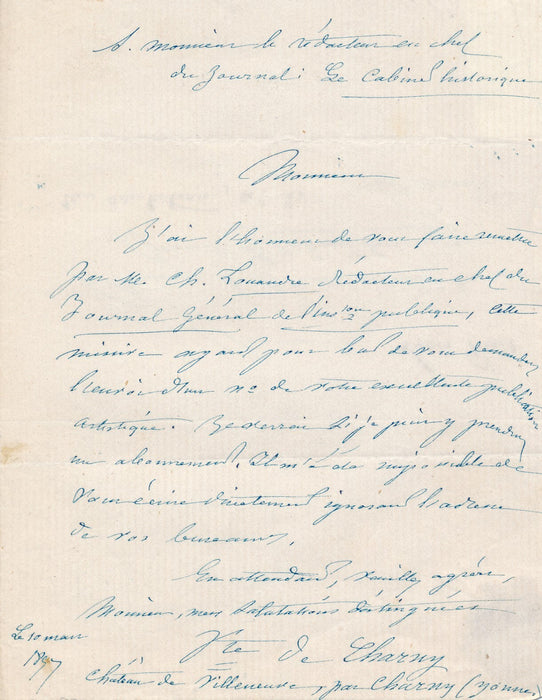 A. monsieur le rédacteur en chef
du Journal : Le Cabinet historique
Monsieur
J'ai l'honneur de vous faire remettre
par Mr. Ch. Louandre Rédacteur en chef du
Journal Général de l'insion publique, cette
missive ayant pour but de vous demander
l'envoi d'un no de votre excellente publication
artistique. Je verrai si je puis y prendre
un abonnement. Il m'a été impossible de
vous écrire directement ignorant l'adresse
de vos bureaux.
En attendant, veuillez agréer,
Monsieur, mes salutations distinguées
Vte de Charny
Le 10 mars
Château de Villeneuve, par Charny (Yonne)